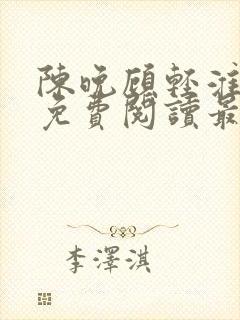 陳晚顧輕淮
免費閱讀最
李澤淇